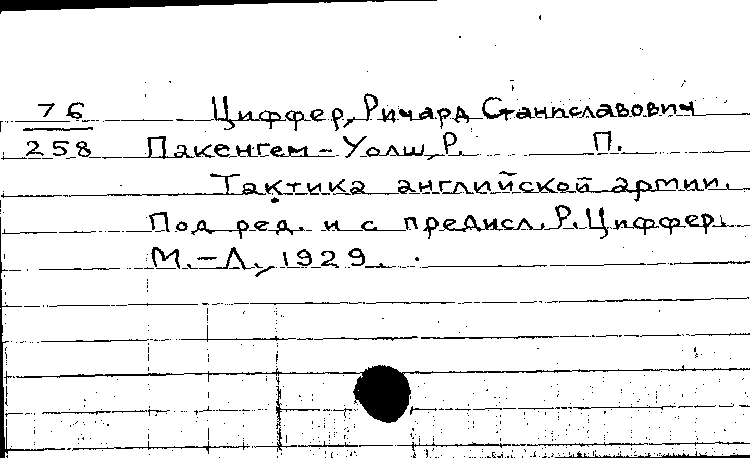 76 Циффер, Ричард Станиславович
258 Пакенгем-Уолш, Р. П.
Тактика английской армии.
Под ред. и с предисл. Р. Циффер.
М.-Л., 1929.